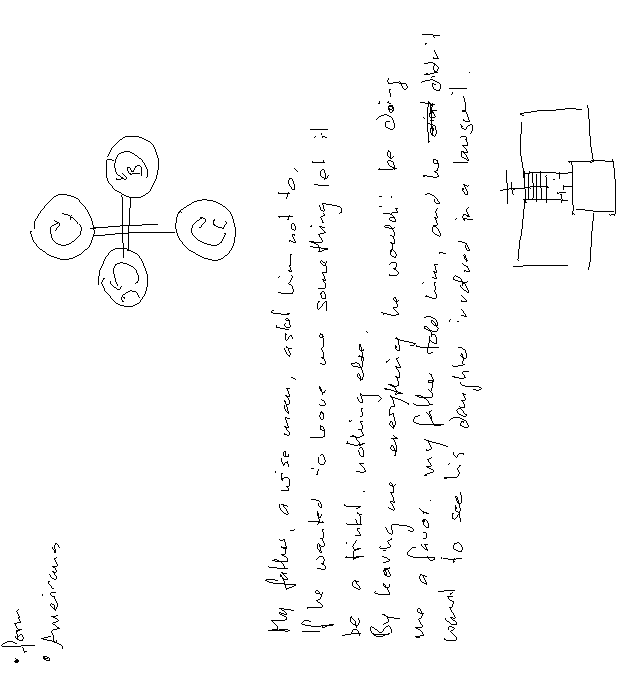 • form
• Americans
My father, a wise man, asked him not to,
If he wanted to leave me something let it
be a trinket. nothing else.
By leaving me everything he wouldn't be doing
me a favor. my father told him, and he didn't
want to see his daughter involved in a lawsuit.
B
C